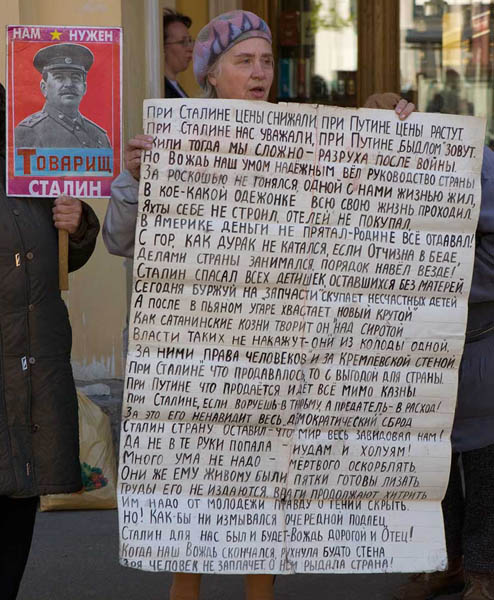 НАМ НУЖЕН
ТОВАРИЩ
СТАЛИН
ПРИ СТАЛИНЕ ЦЕНЫ СНИЖАЛИ, ПРИ ПУТИНЕ ЦЕНЫ РАСТУТ
ПРИ СТАЛИНЕ НАС УВАЖАЛИ, ПРИ ПУТИНЕ „БЫДЛОМ" ЗОВУТ.
ЖИЛИ ТОГДА МЫ СЛОЖНО - РАЗРУХА ПОСЛЕ ВОЙНЫ.
НО ВОЖДЬ НАШ УМОМ НАДЁЖНЫМ ВЁЛ РУКОВОДСТВО СТРАНЫ
ЗА РОСКОШЬЮ НЕ ГОНЯЛСЯ, ОДНОЙ С НАМИ ЖИЗНЬЮ ЖИЛ,
В КОЕ-КАКОЙ ОДЕЖОНКЕ ВСЮ СВОЮ ЖИЗНЬ ПРОХОДИЛ.
ЯХТЫ СЕБЕ НЕ СТРОИЛ, ОТЕЛЕЙ НЕ ПОКУПАЛ,
В АМЕРИКЕ ДЕНЬГИ НЕ ПРЯТАЛ - РОДИНЕ ВСЁ ОТДАВАЛ!
С ГОР, КАК ДУРАК НЕ КАТАЛСЯ, ЕСЛИ ОТЧИЗНА В БЕДЕ,
ДЕЛАМИ СТРАНЫ ЗАНИМАЛСЯ, ПОРЯДОК НАВЁЛ ВЕЗДЕ!
СТАЛИН СПАСАЛ ВСЕХ ДЕТИШЕК, ОСТАВШИХСЯ БЕЗ МАТЕРЕЙ.
СЕГОДНЯ БУРЖУЙ НА „ЗАПЧАСТИ" СКУПАЕТ НЕСЧАСТНЫХ ДЕТЕЙ
А ПОСЛЕ В ПЬЯНОМ УГАРЕ ХВАСТАЕТ „НОВЫЙ КРУТОЙ"
КАК САТАНИНСКИЕ КОЗНИ ТВОРИТ ОН НАД СИРОТОЙ
ВЛАСТИ ТАКИХ НЕ НАКАЖУТ - ОНИ ИЗ КОЛОДЫ ОДНОЙ,
ЗА НИМИ „ПРАВА ЧЕЛОВЕКОВ" И ЗА КРЕМЛЕВСКОЙ СТЕНОЙ.
ПРИ СТАЛИНЕ ЧТО ПРОДАВАЛОСЬ, ТО С ВЫГОДОЙ ДЛЯ СТРАНЫ.
ПРИ ПУТИНЕ ЧТО ПРОДАЁТСЯ ИДЁТ ВСЁ МИМО КАЗНЫ.
ПРИ СТАЛИНЕ, ЕСЛИ ВОРУЕШЬ В ТЮРЬМУ, А ПРЕДАТЕЛЬ - В РАСХОД!
ЗА ЭТО ЕГО НЕНАВИДИТ ВЕСЬ ДЕМОКРАТИЧЕСКИЙ СБРОД
СТАЛИН СТРАНУ ОСТАВИЛ - ЧТО МИР ВЕСЬ ЗАВИДОВАЛ НАМ!
ДА НЕ В ТЕ РУКИ ПОПАЛА - ИУДАМ И ХОЛУЯМ!
МНОГО УМА НЕ НАДО - МЕРТВОГО ОСКОРБЛЯТЬ.
ОНИ ЖЕ ЕМУ ЖИВОМУ БЫЛИ ПЯТКИ ГОТОВЫ ЛИЗАТЬ
ТРУДЫ ЕГО НЕ ИЗДАЮТСЯ, ВРАГИ ПРОДОЛЖАЮТ ХИТРИТЬ
ИМ НАДО ОТ МОЛОДЁЖИ ПРАВДУ О ГЕНИИ СКРЫТЬ.
НО! КАК-БЫ НИ ИЗМЫВАЛСЯ ОЧЕРЕДНОЙ ПОДЛЕЦ,
СТАЛИН ДЛЯ НАС БЫЛ И БУДЕТ - ВОЖДЬ ДОРОГОЙ И ОТЕЦ!
КОГДА НАШ ВОЖДЬ СКОНЧАЛСЯ, РУХНУЛА БУДТО СТЕНА
ЗРЯ ЧЕЛОВЕК НЕ ЗАПЛАЧЕТ, О НЁМ РЫДАЛА СТРАНА!